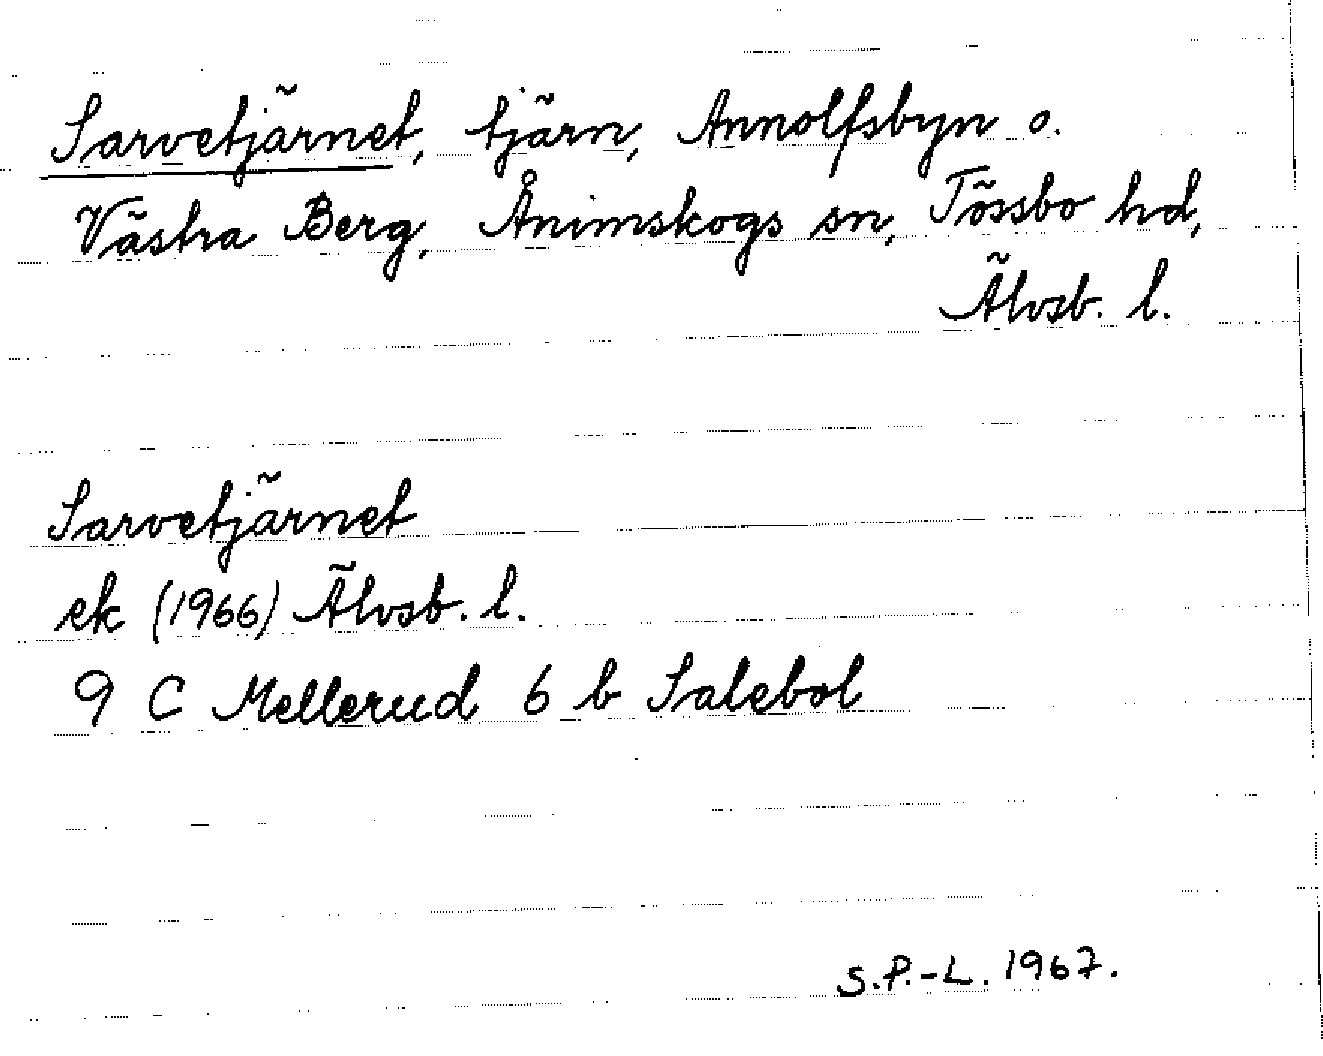 Sarvetjärnet, tjärn, Annolfsbyn o.
Västra Berg, Ånimskogs sn, Tössbo hd,
Älvsb. l.
Sarvetjärnet
ek (1966) Älvsb. l.
9 C Mellerud 6 b Salebol
S.P.-L. 1967.